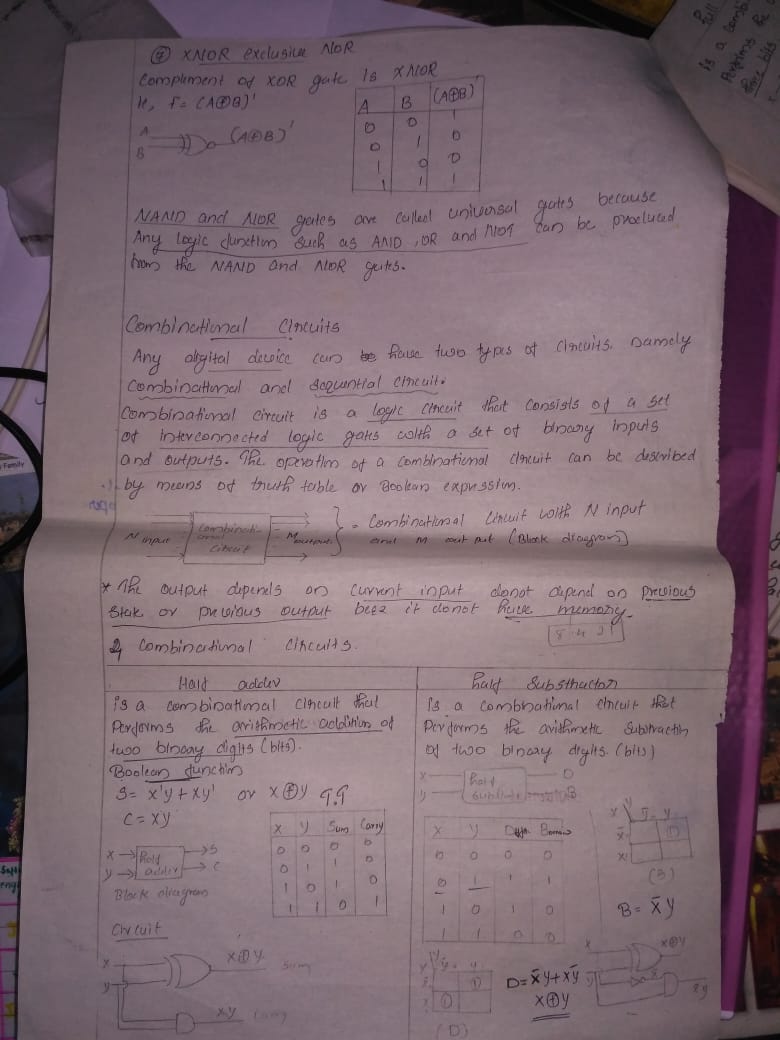 ⑦ XNOR exclusive NOR
Complement of XOR gate is XNOR
ie, f = (A⊕B)'
A
B
(A⊕B)'
A B (A⊕B)'
0 0 1
0 1 0
1 0 0
1 1 1
NAND and NOR gates are called universal gates because
Any logic function such as AND, OR and NOT can be produced
from the NAND and NOR gates.
Combinational Circuits
Any digital device can have two types of circuits. namely
combinational and sequential circuit.
Combinational circuit is a logic circuit that consists of a set
of interconnected logic gates with a set of binary inputs
and outputs. The operation of a combinational circuit can be described
by means of truth table or Boolean expression.
N input
Combinati-
onal
circuit
M output
= Combinational circuit with N input
and M out put (Block diagram)
* The output depends on current input donot depend on previous
state or previous output bcez it donot have memory.
8.4.21
2, Combinational circuits.
Half adder
is a combinational circuit that
Performs the arithmetic addition of
two binary digits (bits).
Boolean function
S = x'y + xy' or x⊕y
C = xy
x
y
half
adder
S
C
Block diagram
X Y Sum Carry
0 0 0 0
0 1 1 0
1 0 1 0
1 1 0 1
Circuit
x
y
x⊕y
Sum
xy
Half Substractor
is a combinational circuit that
Performs the arithmetic subtraction
of two binary digits. (bits)
x
y
half
D
B
X Y Borrow
0 0 0 0
0 1 1 1
1 0 1 0
1 1 0 0
(B)
B = x̄y
(D)
D = x̄y + xȳ
x⊕y
x
y
x⊕y
x̄y